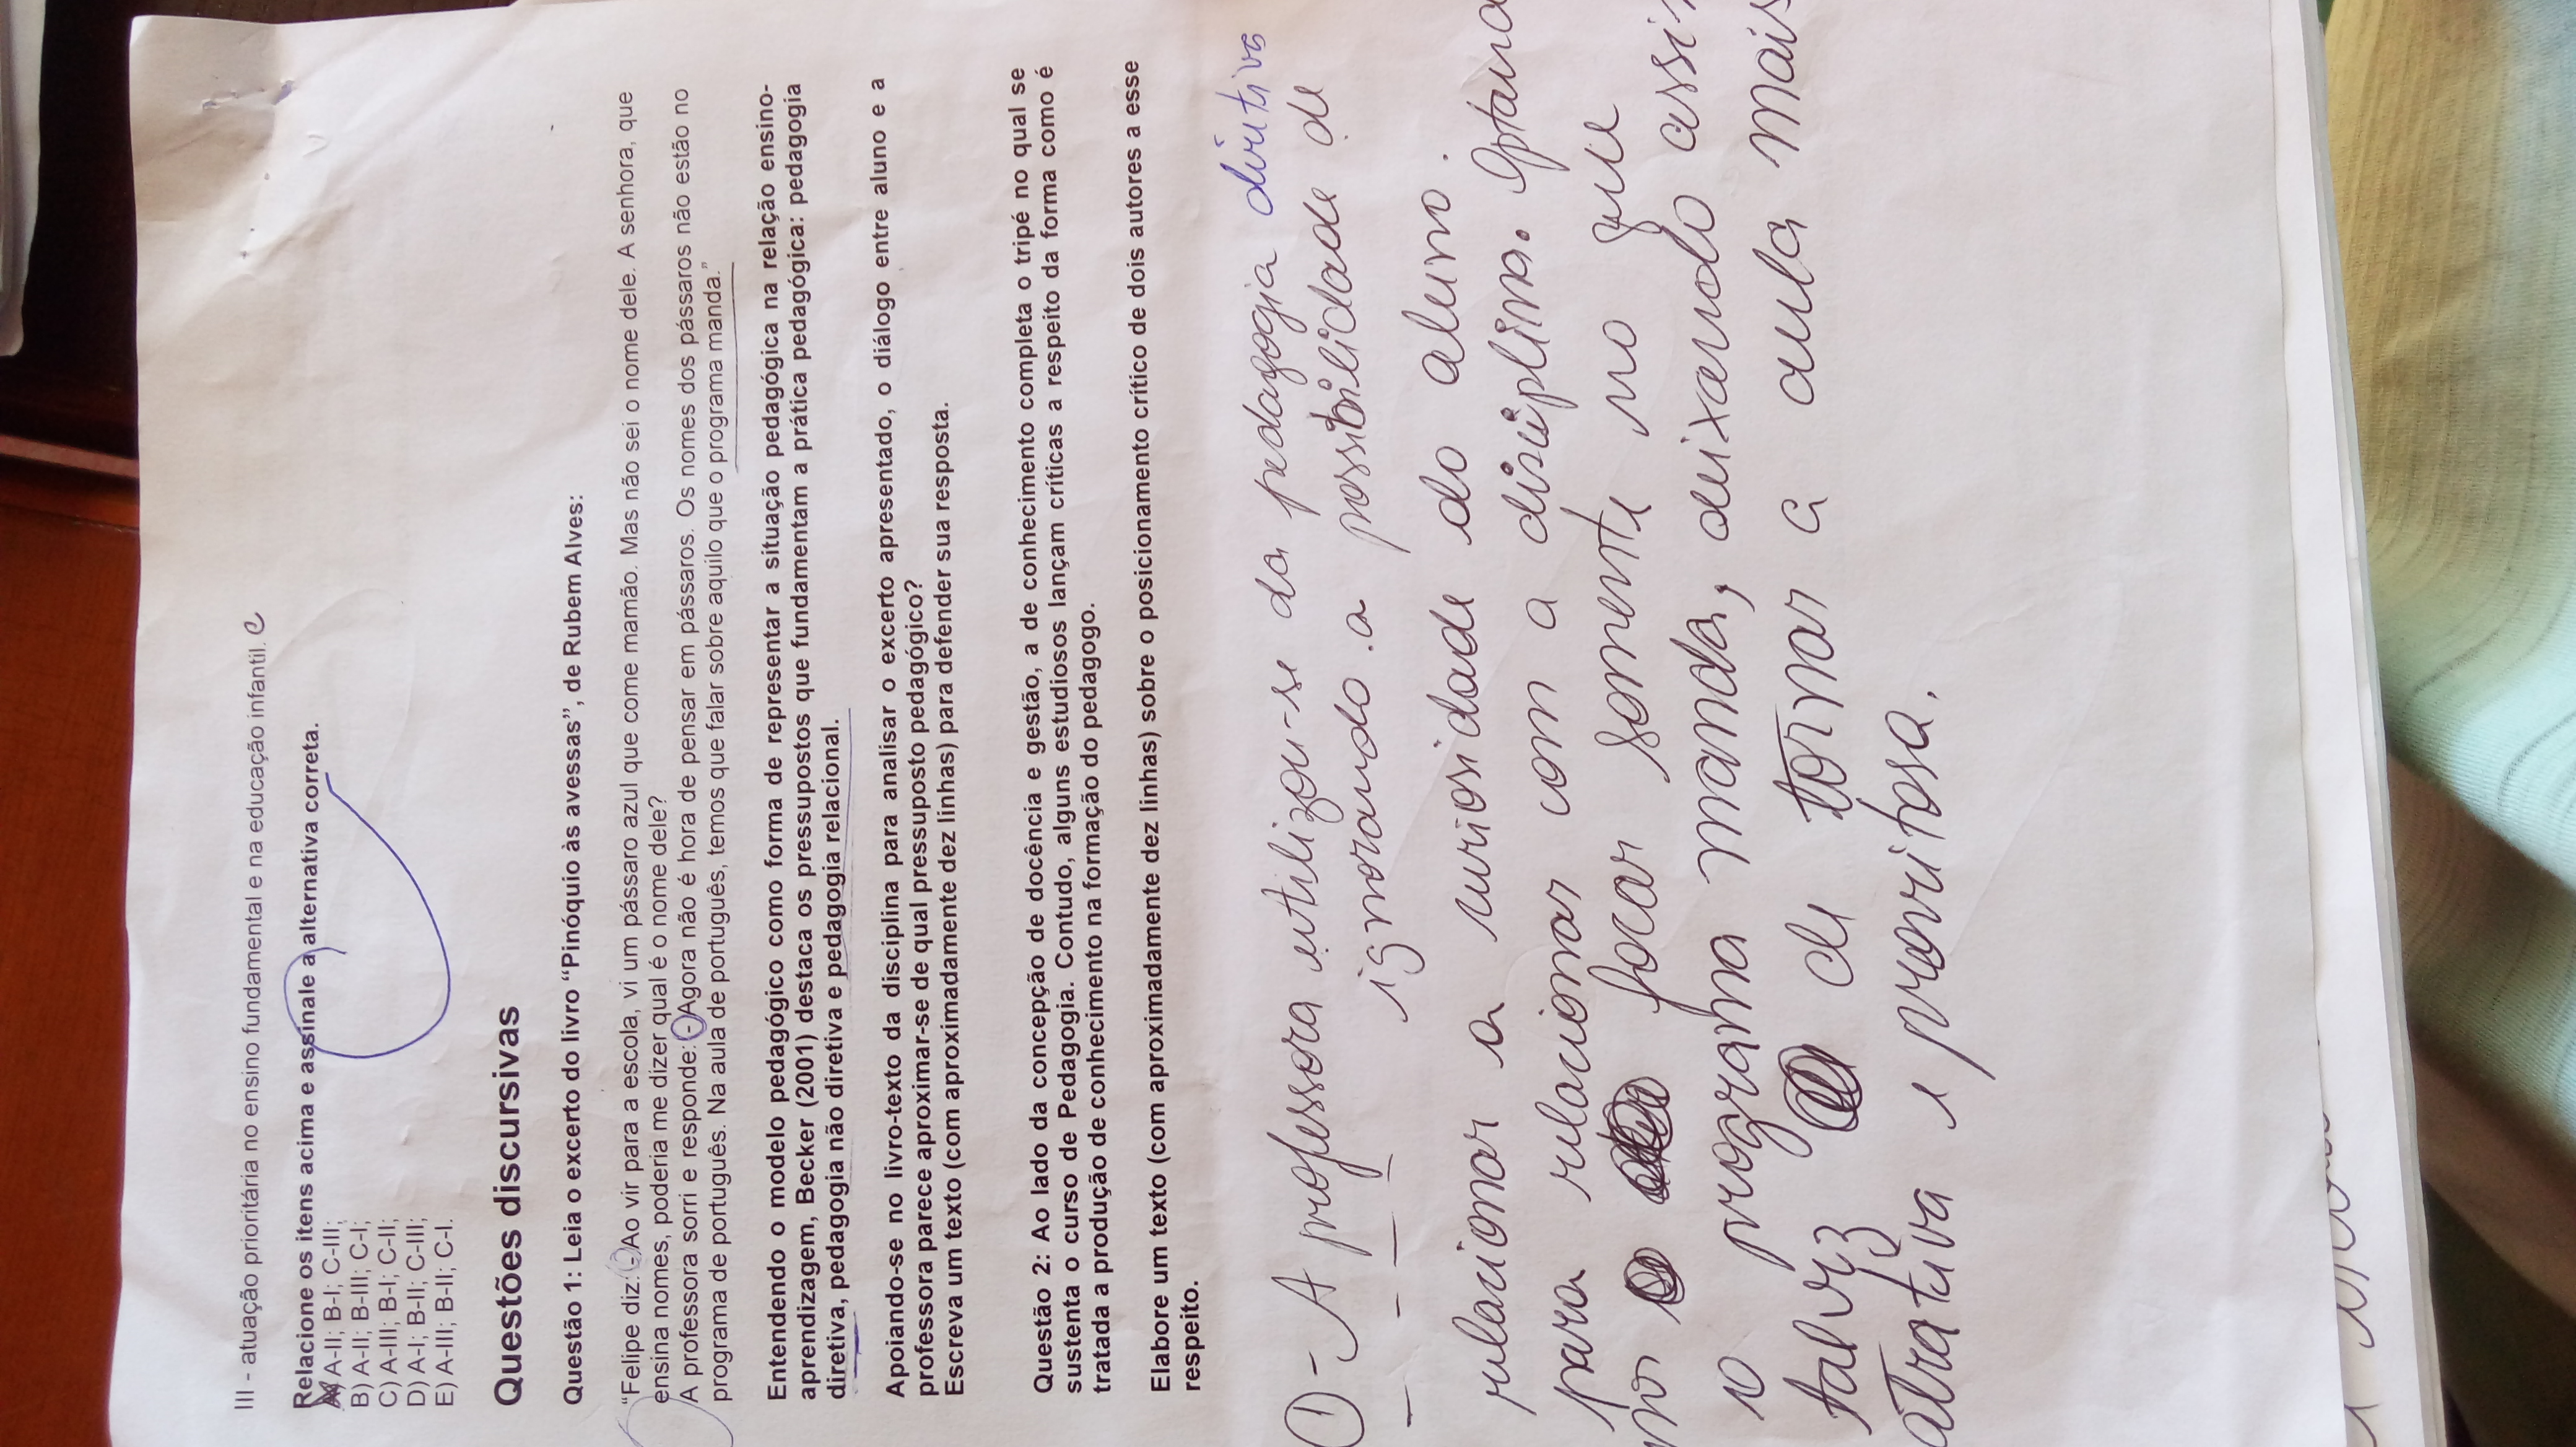 III - atuação prioritária no ensino fundamental e na educação infantil. C
Relacione os itens acima e assinale a alternativa correta.
A) A-II; B-I; C-III;
B) A-II; B-III; C-I;
C) A-III; B-I; C-II;
D) A-I; B-II; C-III;
E) A-III; B-II; C-I.
Questões discursivas
Questão 1: Leia o excerto do livro “Pinóquio às avessas”, de Rubem Alves:
“Felipe diz: - Ao vir para a escola, vi um pássaro azul que come mamão. Mas não sei o nome dele. A senhora, que
ensina nomes, poderia me dizer qual é o nome dele?
A professora sorri e responde: - Agora não é hora de pensar em pássaros. Os nomes dos pássaros não estão no
programa de português. Na aula de português, temos que falar sobre aquilo que o programa manda.”
Entendendo o modelo pedagógico como forma de representar a situação pedagógica na relação ensino-
aprendizagem, Becker (2001) destaca os pressupostos que fundamentam a prática pedagógica: pedagogia
diretiva, pedagogia não diretiva e pedagogia relacional.
Apoiando-se no livro-texto da disciplina para analisar o excerto apresentado, o diálogo entre aluno e a
professora parece aproximar-se de qual pressuposto pedagógico?
Escreva um texto (com aproximadamente dez linhas) para defender sua resposta.
Questão 2: Ao lado da concepção de docência e gestão, a de conhecimento completa o tripé no qual se
sustenta o curso de Pedagogia. Contudo, alguns estudiosos lançam críticas a respeito da forma como é
tratada a produção de conhecimento na formação do pedagogo.
Elabore um texto (com aproximadamente dez linhas) sobre o posicionamento crítico de dois autores a esse
respeito.
1 - A professora utilizou-se da pedagogia diretiva
ignorando a possibilidade de
relacionar a curiosidade do aluno
para relacionar com a disciplina.
focar somente no que
o programa manda, deixando
talvez de tornar a aula mais
atrativa e proveitosa.